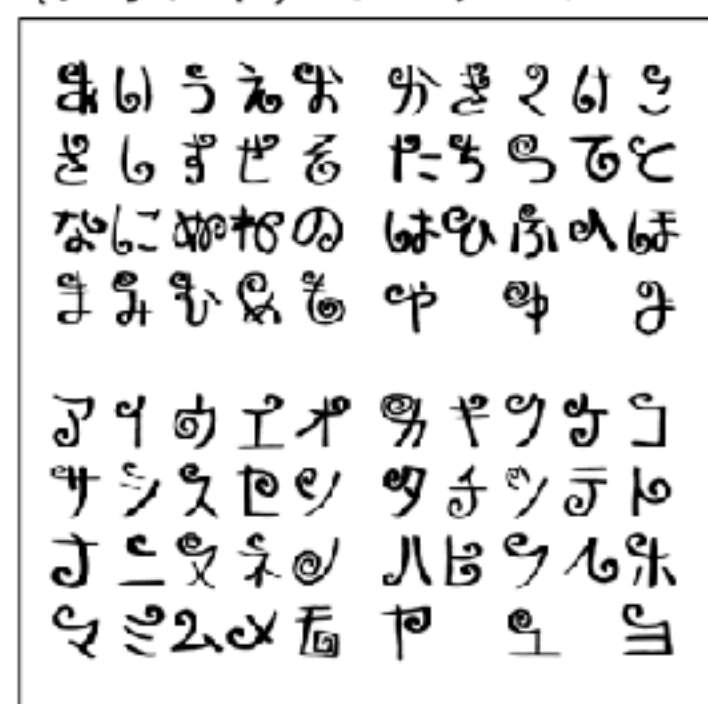 あいうえお かきくけこ
さしすせそ たちつてと
なにぬねの はひふへほ
まみむめも や ゆ よ
アイウエオ カキクケコ
サシスセソ タチツテト
ナニヌネノ ハヒフヘホ
マミムメモ ヤ ユ ヨ